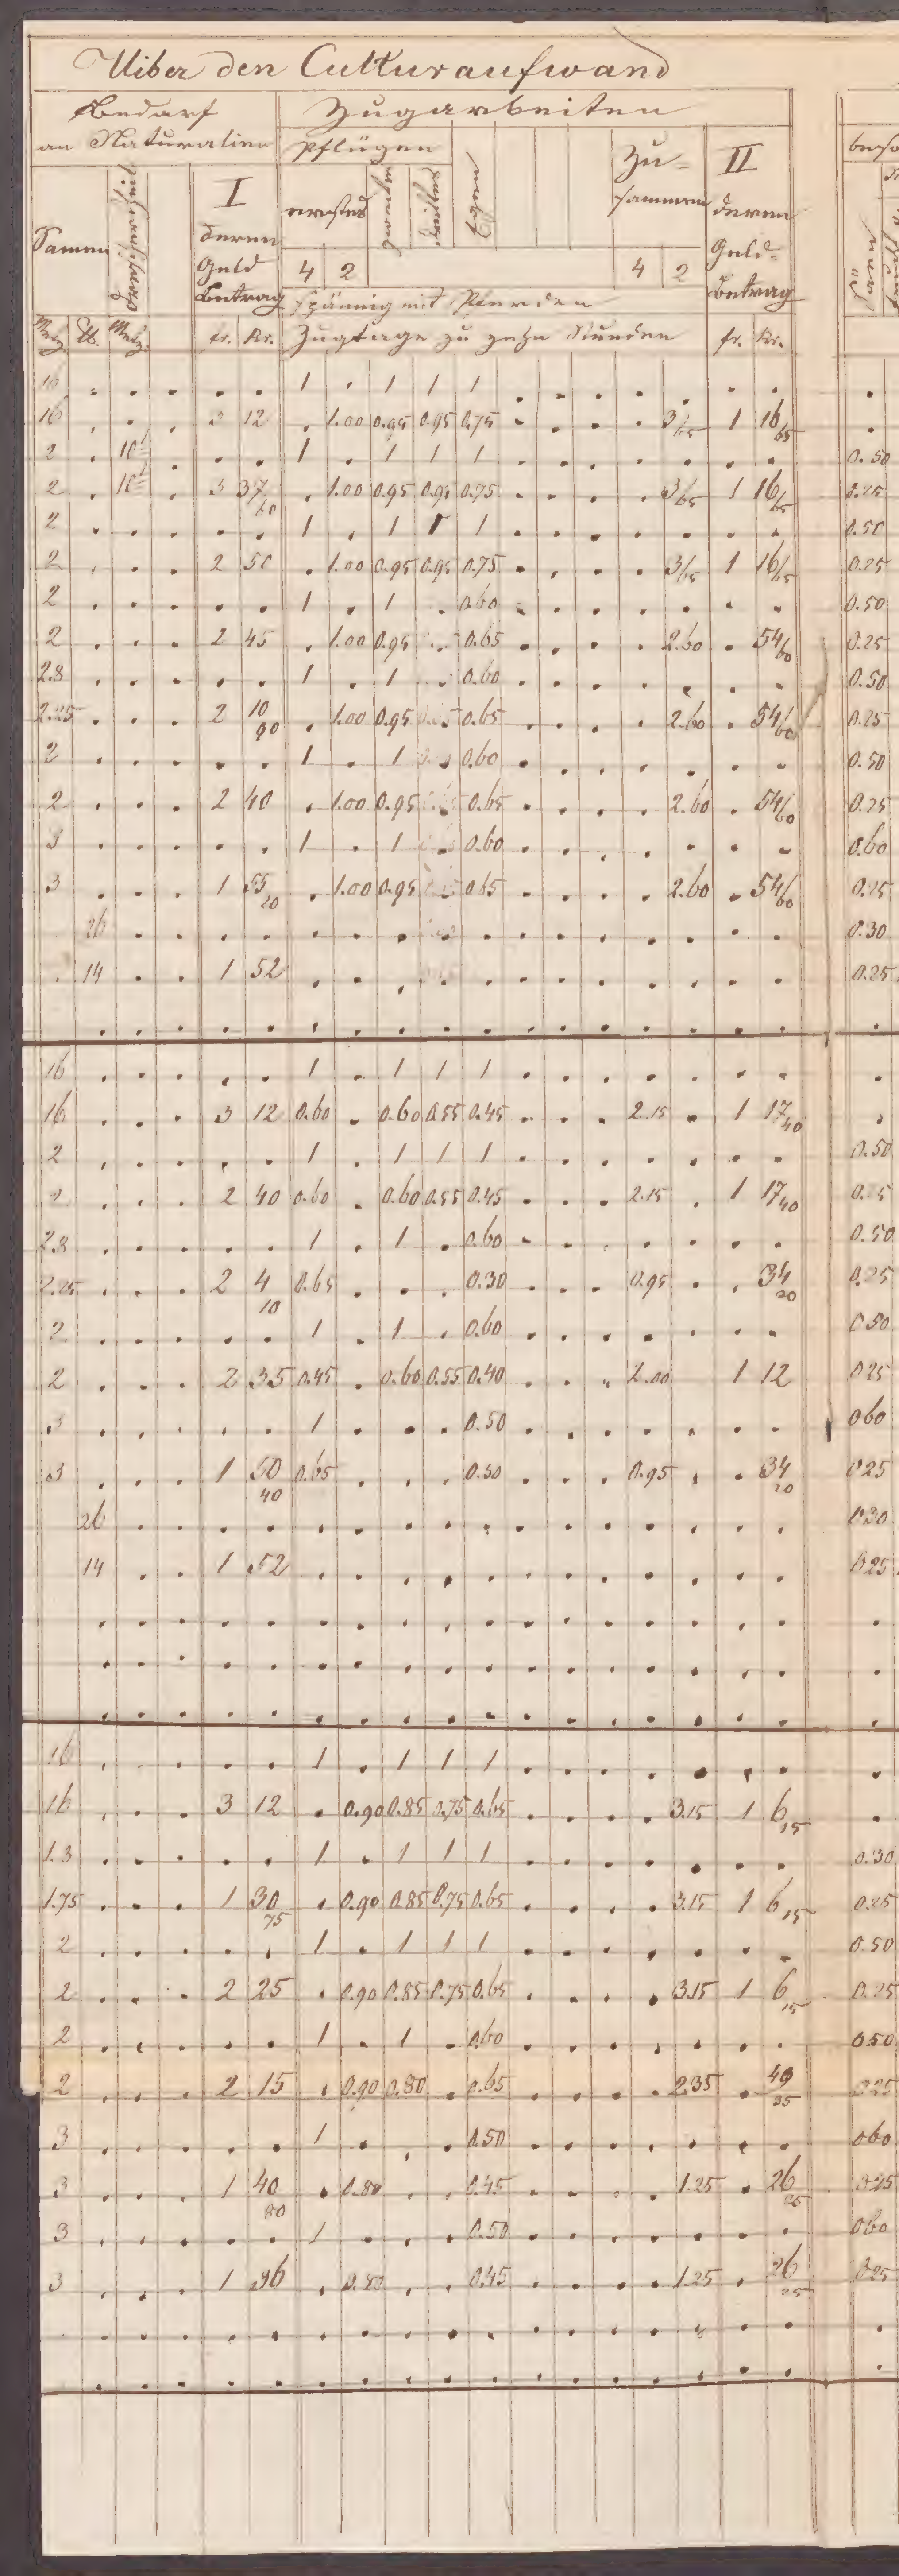 Uiber den Culturaufwand
Bedarf an Naturalien
Zugarbeiten
Pflügen
Zu-sammen
II
I
erstes
zweites
drittes
Egen
deren Geld-Betrag
Samen
deren Geld Betrag
4 2 4 2
spännig mit Pferden
Säen
Metz. ℔. Metz. fr. Kr. Zugtage zu zehn Stunden fr. Kr.
16 . . . . . 1 . 1 1 1 . . . . . . . . .
16 . . . 3 12 . 1.00 0.95 0.95 0.75 . . . . . 3/65 1 16/65 .
2 . 10 . . . 1 . 1 1 1 . . . . . . . . 0.50
2 . 10 . 3 37/60 . 1.00 0.95 0.95 0.75 . . . . . 3/65 1 16/65 0.25
2 . . . . . 1 . 1 1 1 . . . . . . . . 0.50
2 . . . 2 50 . 1.00 0.95 0.95 0.75 . . . . . 3/65 1 16/65 0.25
2 . . . . . 1 . 1 . 0.60 . . . . . . . . 0.50
2 . . . 2 45 . 1.00 0.95 . 0.65 . . . . . 2.60 . 54/60 0.25
2.8 . . . . . 1 . 1 . 0.60 . . . . . . . . 0.50
2.25 . . . 2 10/90 . 1.00 0.95 0.65 . . . . . 2.60 . 54/60 0.25
2 . . . . . 1 . 1 . 0.60 . . . . . . . . 0.50
2 . . . 2 40 . 1.00 0.95 0.65 . . . . . 2.60 . 54/60 0.25
3 . . . . . 1 . 1 . 0.60 . . . . . . . . 0.60
3 . . . 1 55/20 . 1.00 0.95 0.65 . . . . . 2.60 . 54/60 0.25
. 26 . . . . . . . . . . . . . . . . . 0.30
. 14 . . 1 52 . . . . . . . . . . . . . 0.25
. . . . . . . . . . . . . . . . . .
16 . . . . . 1 . 1 1 1 . . . . . . . . .
16 . . . 3 12 0.60 . 0.60 0.55 0.45 . . . . 2.15 . 1 17/40 .
2 . . . . . 1 . 1 1 1 . . . . . . . . 0.50
2 . . . 2 40 0.60 . 0.60 0.55 0.45 . . . . 2.15 . 1 17/40 0.25
2.8 . . . . . 1 . 1 . 0.60 . . . . . . . . 0.50
2.25 . . . 2 4/10 0.65 . . . 0.30 . . . . 0.95 . . 34/20 0.25
2 . . . . . 1 . 1 . 0.60 . . . . . . . . 0.50
2 . . . 2 35 0.45 . 0.60 0.55 0.40 . . . . 2.00 1 12 0.25
3 . . . . . 1 . . . 0.50 . . . . . . . . 0.60
3 . . . 1 50/40 0.65 . . . 0.30 . . . . 0.95 . . 34/20 0.25
26 . . . . . . . . . . . . . . . . . 0.30
14 . . 1 52 . . . . . . . . . . . . . 0.25
. . . . . . . . . . . . . . . . . .
. . . . . . . . . . . . . . . . . .
. . . . . . . . . . . . . . . . . .
16 . . . . . 1 . 1 1 1 . . . . . . . . .
16 . . . 3 12 . 0.90 0.85 0.75 0.65 . . . . . 3.15 1 6/15 .
1.3 . . . . . 1 . 1 1 1 . . . . . . . . 0.30
1.75 . . . 1 30/75 . 0.90 0.85 0.75 0.65 . . . . . 3.15 1 6/15 0.25
2 . . . . . 1 . 1 1 1 . . . . . . . . 0.50
2 . . . 2 25 . 0.90 0.85 0.75 0.65 . . . . . 3.15 1 6/15 0.25
2 . . . . . 1 . 1 . 0.60 . . . . . . . . 0.50
2 . . . 2 15 . 0.90 0.80 . 0.65 . . . . . 2.35 . 49/35 0.25
3 . . . . . 1 . . . 0.50 . . . . . . . . 0.60
3 . . . 1 40/80 . 0.80 . . 0.45 . . . . . 1.25 . 26/25 0.25
3 . . . . . 1 . . . 0.50 . . . . . . . . 0.60
3 . . . 1 36 . 0.80 . . 0.45 . . . . . 1.25 . 26/25 0.25
. . . . . . . . . . . . . . . . . .
. . . . . . . . . . . . . . . . . .